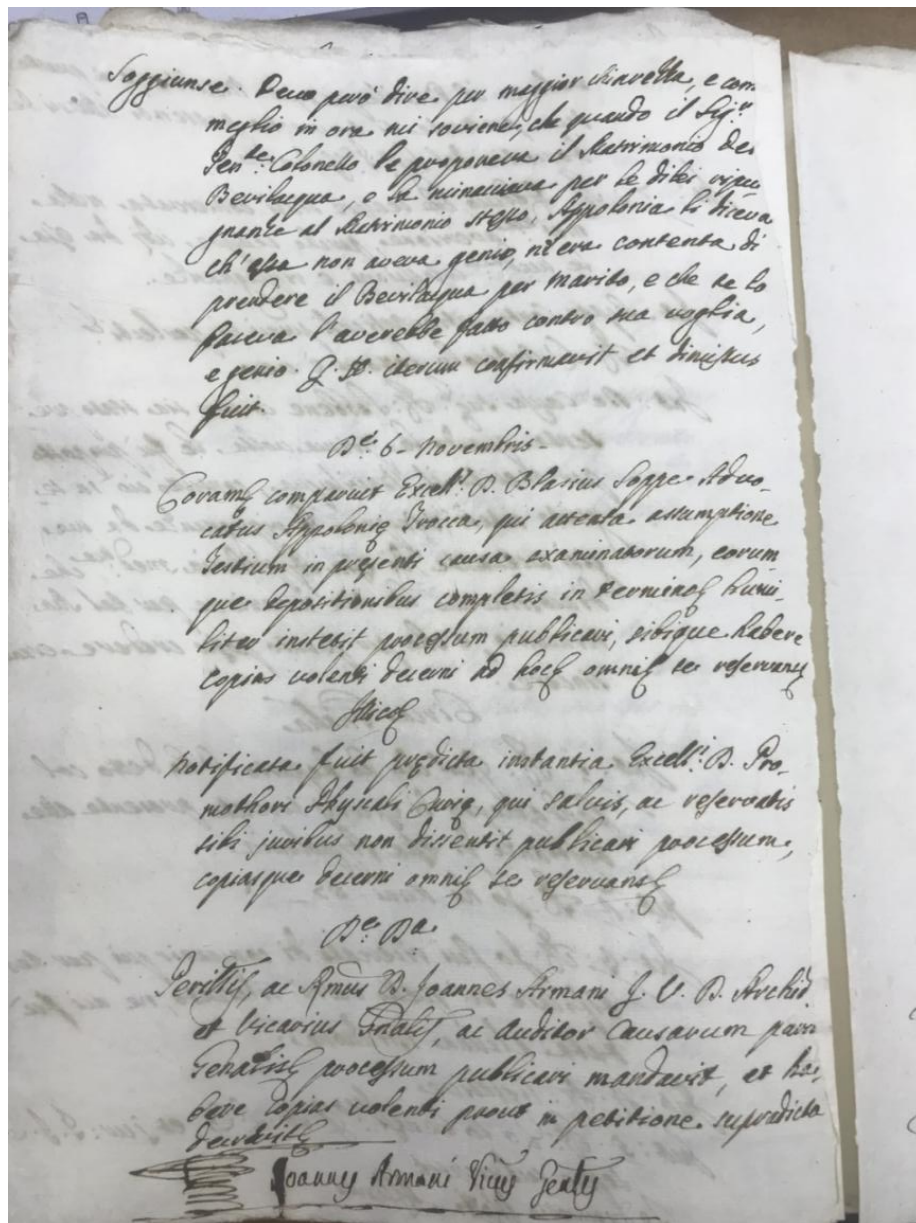 Soggiunse. Devo però dire per maggior chiarezza, e com
meglio in ora mi soviene, che quando il Sig.r
Ten.te Colonello le proponeva il Matrimonio del
Bevilacqua, e la minacciava per le di lei ripu-
gnanze al Matrimonio stesso, Appolonia li diceva
ch'essa non aveva genio, nè era contenta di
prendere il Bevilacqua per marito, e che se lo
faceva l'averebbe fatto contro sua voglia,
e genio. Q. D. iterum confirmavit et dimissus
fuit.
D.e 6. Novembris.
Coram comparuit Excell.s D. Blasius Soppe Advo-
catus Appolonię Trocca, qui attenta assumptione
Testium in pręsenti causa examinatorum, eorum
que depositionibus completis in termine humi-
liter institit processum publicari, sibique habere
copias volenti decerni ad hoc omni se reservans
Illico
Notificata fuit prędicta instantia Excell.i D. Pro-
mothori Physcali Curię, qui salvis, ac reservatis
sibi juribus non dissentit publicari processum,
copiasque decerni omni se reservans
D.e D.a
Perill.is, ac Rmus D. Joannes Armani J. V. D. Archid.
et Vicarius Gnalis, ac Auditor Causarum pariter
Genalis processum publicari mandavit, et ha-
bere copias volenti prout in petitione supradicta
decrevit
Joannes Armani Vic.s Gen.lis